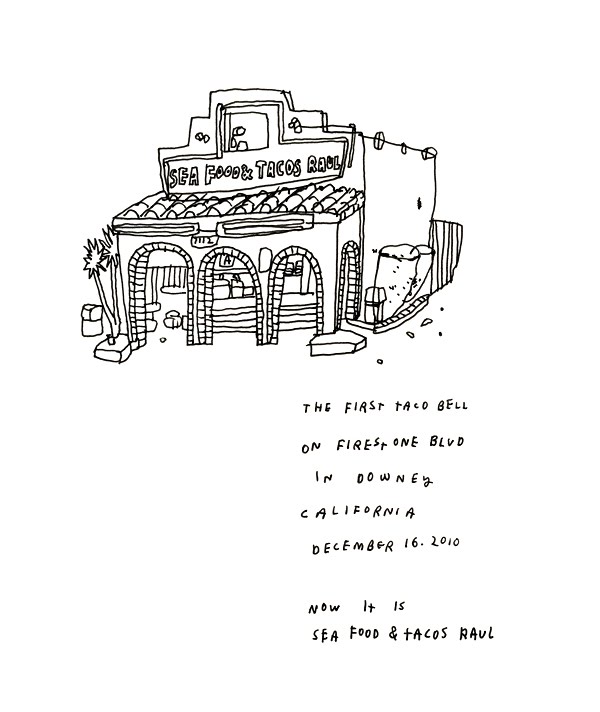 SEA FOOD & TACOS RAUL
THE FIRST TACO BELL
ON FIRESTONE BLVD
IN DOWNEY
CALIFORNIA
DECEMBER 16. 2010
NOW IT IS
SEA FOOD & TACOS RAUL